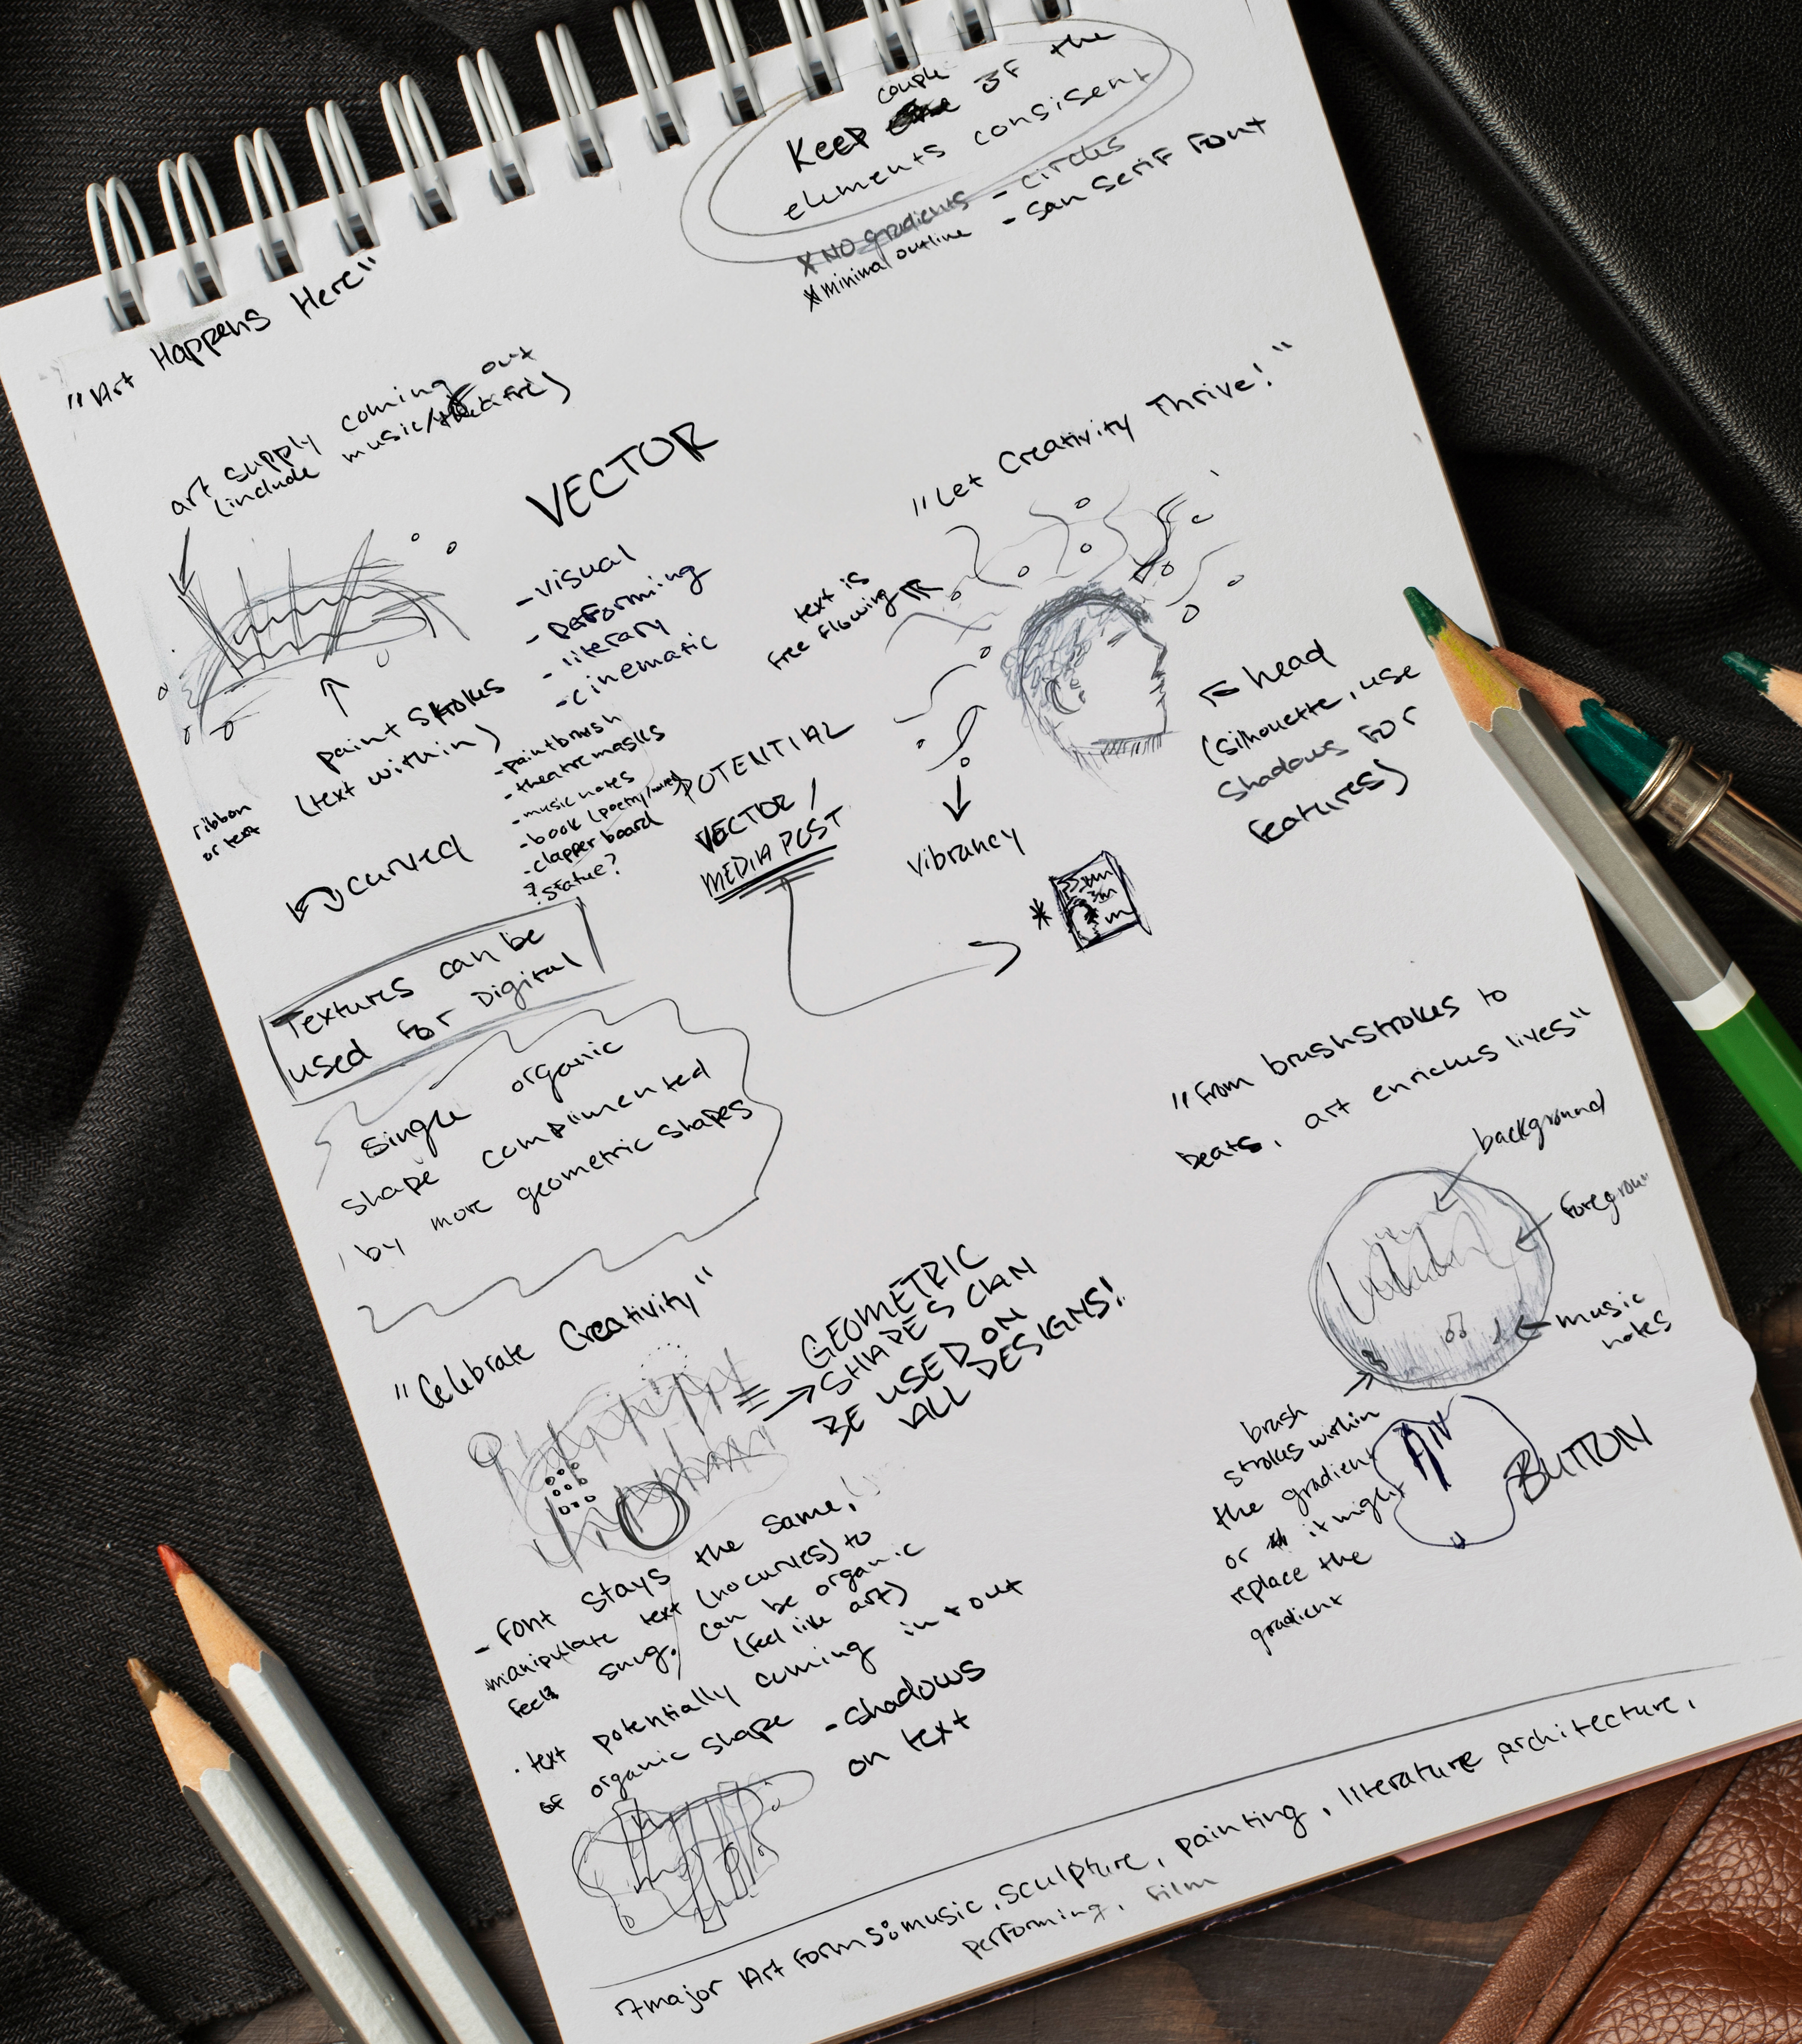 Keep couple of the
elements consisent
- circles
- san serif font
x NO gradients
x minimal outline
"Art Happens Here"
art supply coming out
(include music/theatre)
VECTOR
- visual
- performing
- literary
- cinematic
- paintbrush
- theatre masks
- music notes
- book (poetry/
- clapper board
? statue?
paint strokes
(text within)
ribbon
or text
curved
"Let Creativity Thrive!"
text is
free flowing
head
(silhouette, use
shadows for
features)
vibrancy
POTENTIAL
VECTOR /
MEDIA POST
*
Textures can be
used for Digital
single organic
shape complimented
by more geometric shapes
"From brushstrokes to
beats, art enriches lives"
background
foregroun
music
notes
brush
strokes within
the gradient
or it might
replace the
gradient
BUTTON
"Celebrate Creativity"
GEOMETRIC
SHAPES CAN
BE USED ON
ALL DESIGNS!
- Font stays the same,
manipulate text (no curves) to
feel snug. can be organic
(feel like art)
· text potentially coming in + out
of organic shape
- shadows
on text
7 major Art forms: music, sculpture, painting, literature architecture,
performing, film